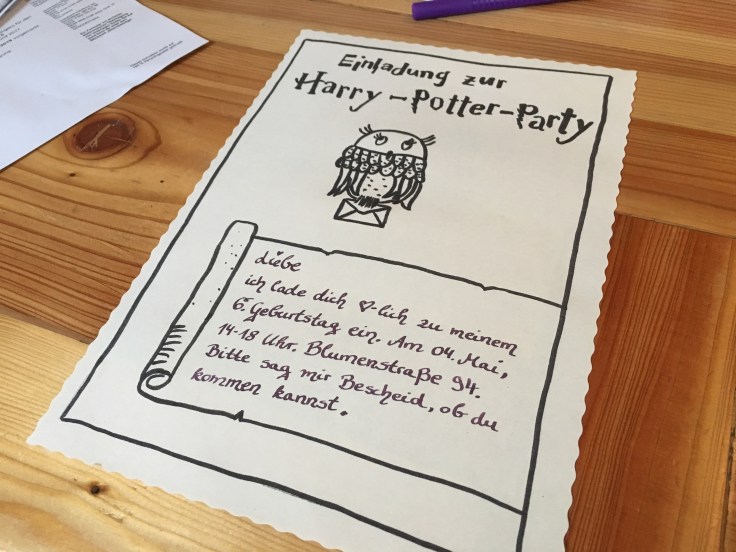 Einladung zur
Harry-Potter-Party
Liebe
ich lade dich ♡-lich zu meinem
6. Geburtstag ein. Am 04. Mai,
14-18 Uhr. Blumenstraße 94.
Bitte sag mir Bescheid, ob du
kommen kannst.